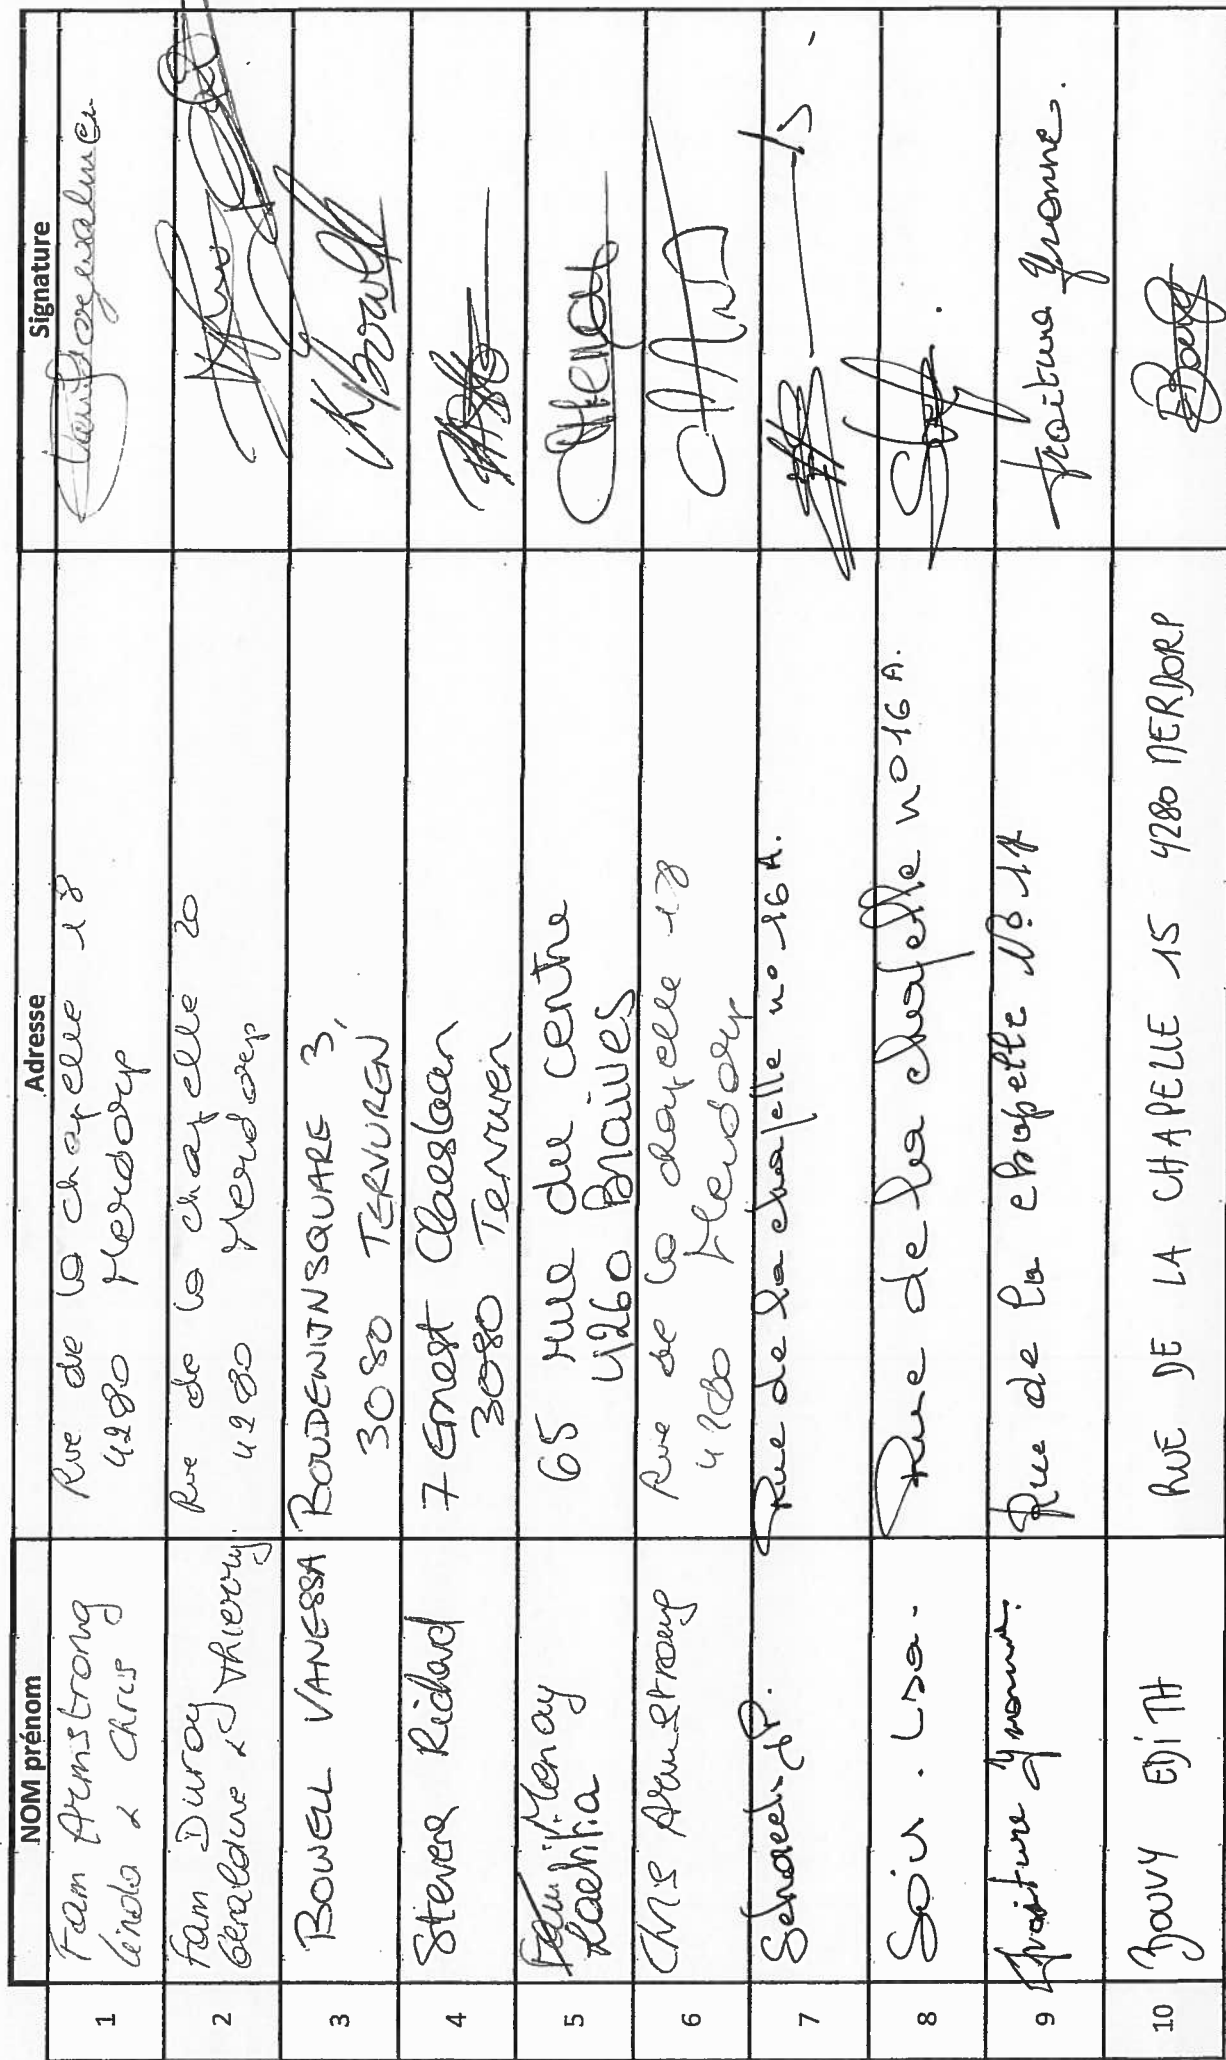 NOM prénom
Adresse
Signature
1
Fam Armstrong
Linda & Chris
Rue de la chapelle 18
4280 Merdorp
2
Fam Duroy
Geraldine & Thierry
Rue de la chapelle 20
4280 Merdorp
3
BOWELL VANESSA
BOUDEWIJNSQUARE 3,
3080 TERVUREN
VKBowell
4
Stevens Richard
7 Ernest Claeslaan
3080 Tervuren
5
Menay
Laetitia
65 rue du centre
4260 Braives
6
Chris Armstrong
Rue de la chapelle 18
4280 Merdorp
7
JP.
Rue de la chapelle no 16 A.
8
Lisa.
Rue de la chapelle no 16 A.
9
Froiture Yvonne.
Rue de la chapelle No. 17
Froiture Yvonne.
10
BOUVY EDITH
RUE DE LA CHAPELLE 15 4280 MERDORP